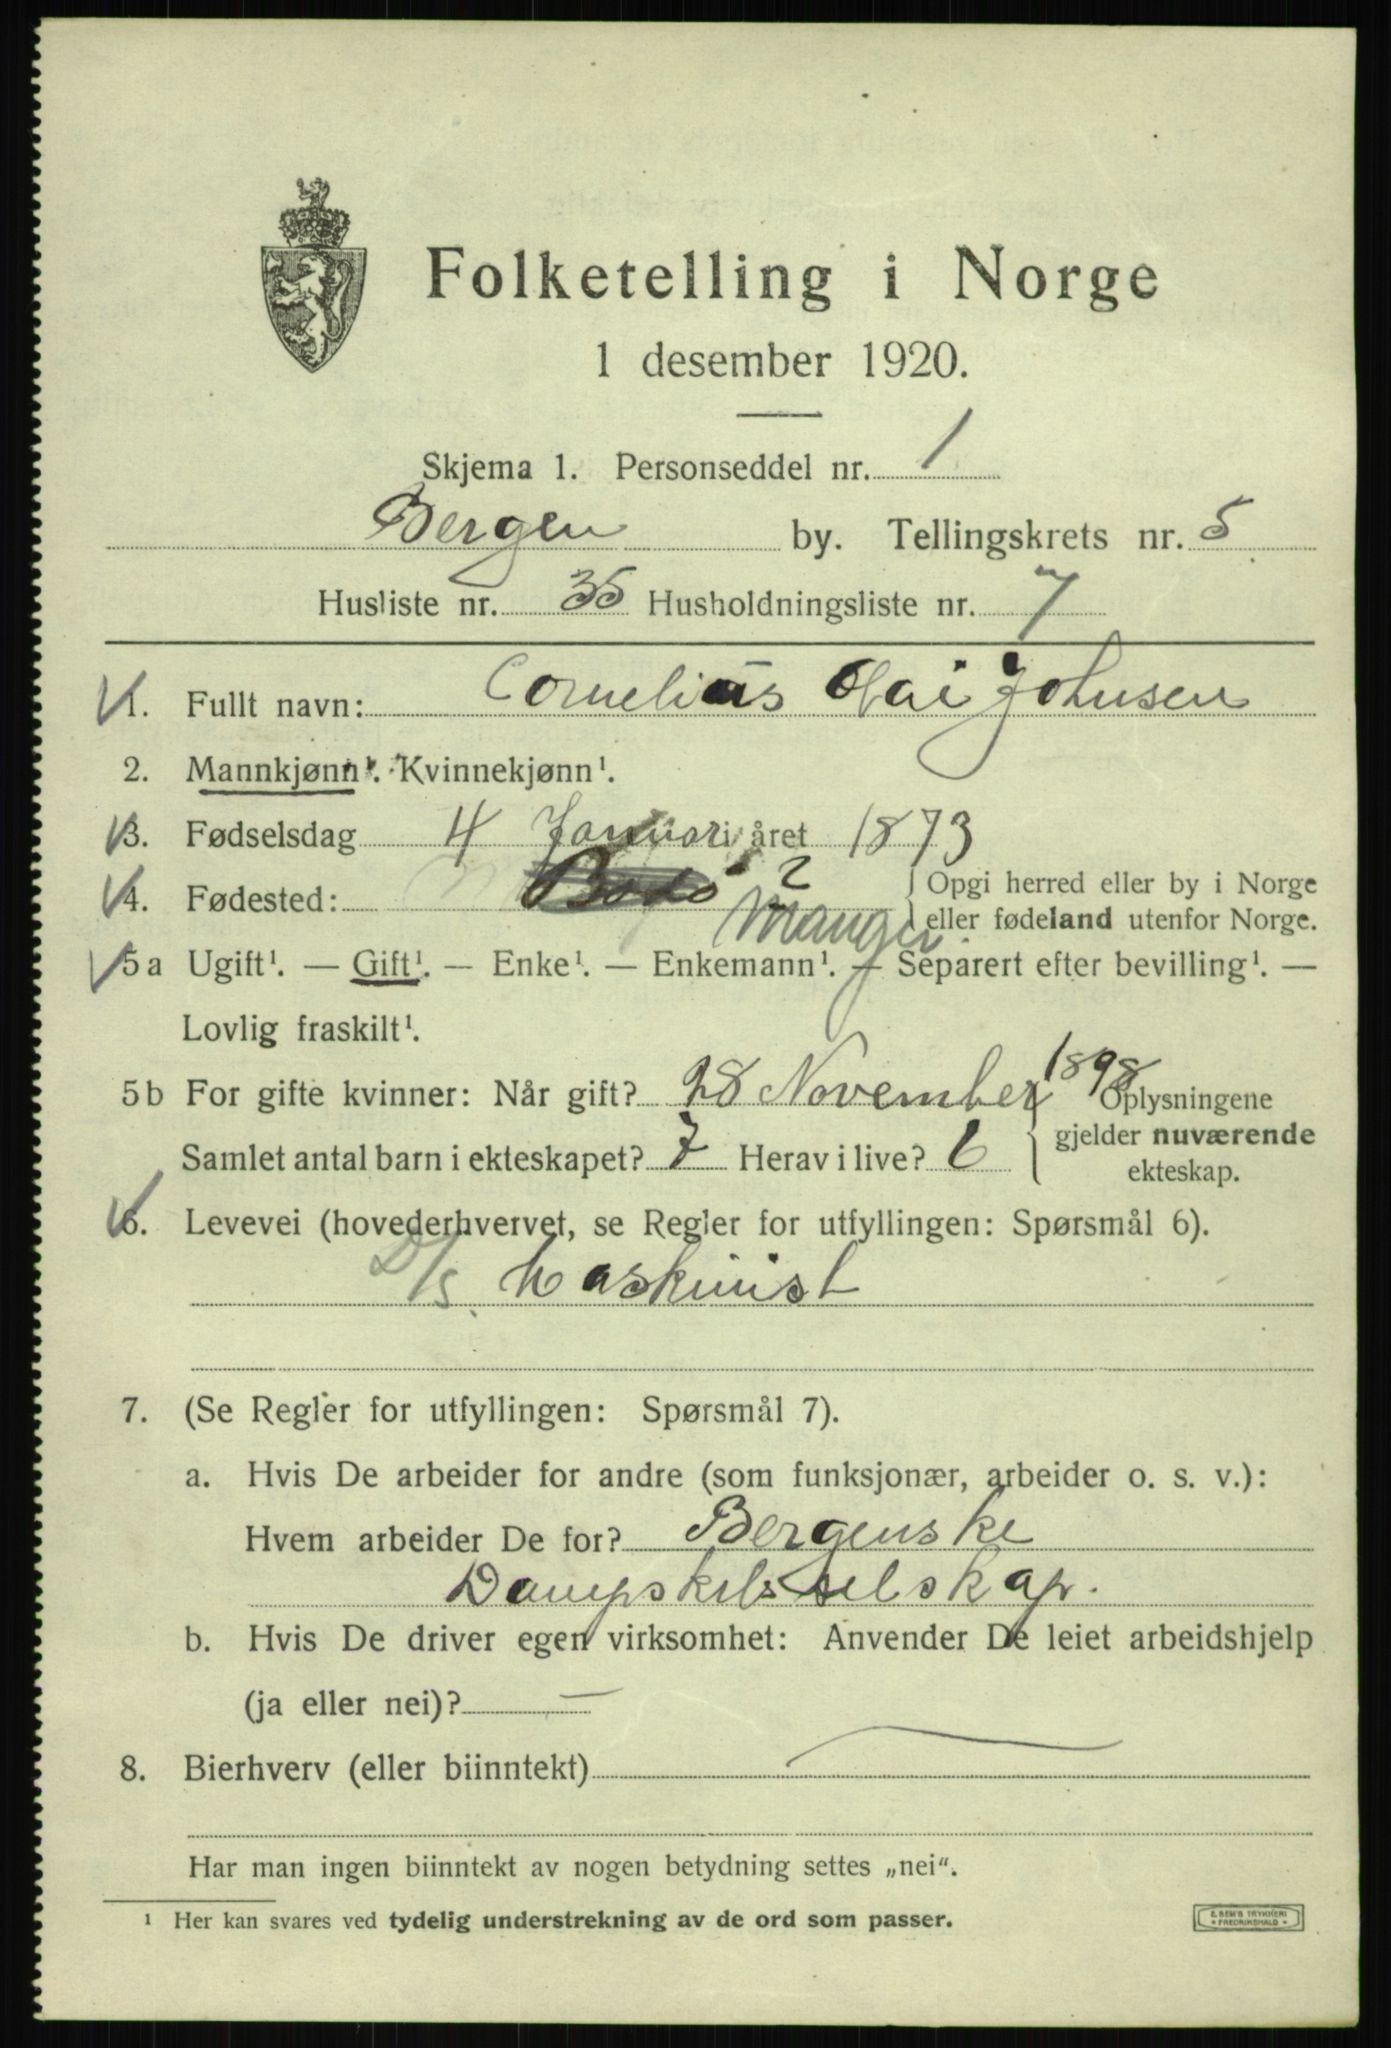 Folketelling i Norge
1 desember 1920.
Skjema 1. Personseddel nr. 1
Bergen by. Tellingskrets nr. 5
Husliste nr. 35 Husholdningsliste nr. 7
1. Fullt navn: Cornelius Olai Johnsen
2. Mannkjønn¹. Kvinnekjønn¹.
3. Fødselsdag 4 Januar i året 1873
4. Fødested: Bodø ? Manger. Opgi herred eller by i Norge
eller fødeland utenfor Norge.
5a Ugift¹. — Gift¹. — Enke¹. — Enkemann¹. — Separert efter bevilling¹. —
Lovlig fraskilt¹.
5b For gifte kvinner: Når gift? 28 November 1898 Oplysningene
gjelder nuværende
Samlet antal barn i ekteskapet? 7 Herav i live? 6 ekteskap.
6. Levevei (hovederhvervet, se Regler for utfyllingen: Spørsmål 6).
D/S. Maskinist
7. (Se Regler for utfyllingen: Spørsmål 7).
a. Hvis De arbeider for andre (som funksjonær, arbeider o. s. v.):
Hvem arbeider De for? Bergenske
Dampskibsselskap.
b. Hvis De driver egen virksomhet: Anvender De leiet arbeidshjelp
(ja eller nei)? —
8. Bierhverv (eller biinntekt) —
Har man ingen biinntekt av nogen betydning settes „nei“.
¹ Her kan svares ved tydelig understrekning av de ord som passer.
E. SEM'S TRYKKERI
FREDRIKSHALD